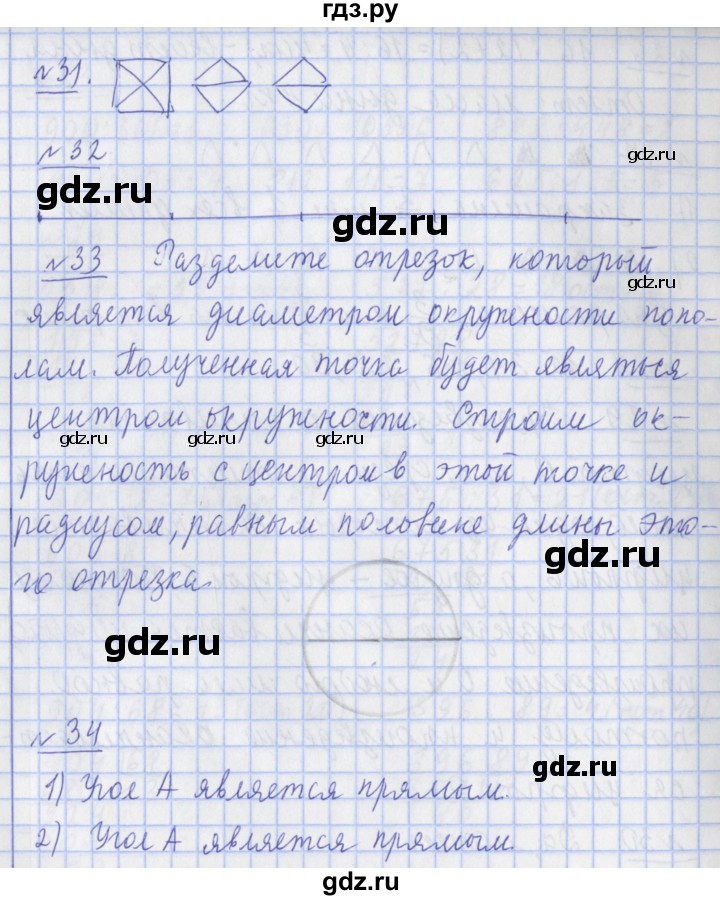 гдз.ру
№31.
№32
gdz.ru
gdz.ru
gdz.ru
№33 Разделите отрезок, который
gdz.ru
является диаметром окружности попо-
лам. Полученная точка будет являться
центром окружности. Строим ок-
gdz.ru gdz.ru gdz.ru gdz.ru
ружность с центром в этой точке и
радиусом, равным половине длины это-
gdz.ru
го отрезка.
gdz.ru
№34
gdz.ru
1) Угол А является прямым.
2) Угол А является прямым.
gdz.ru